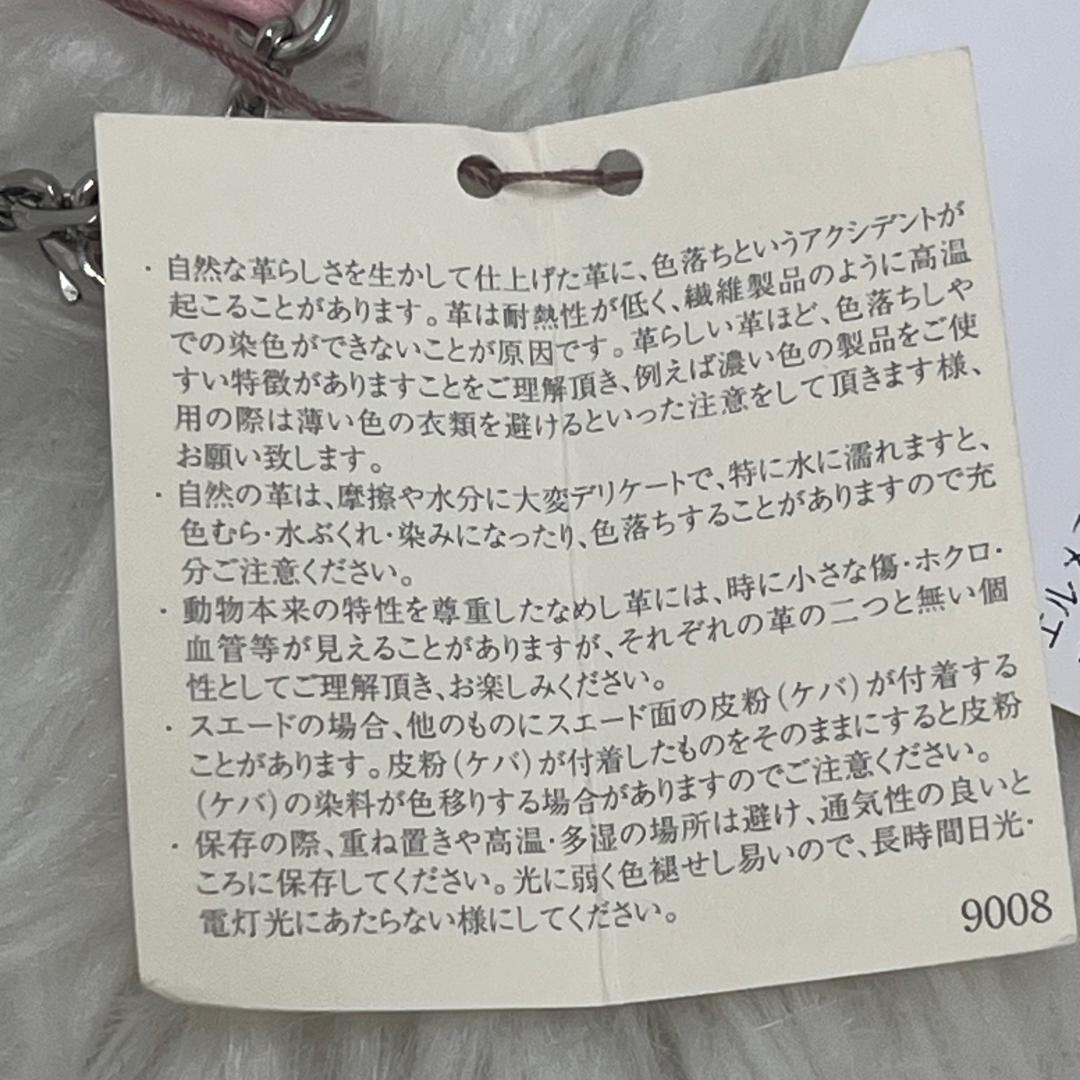 ・自然な革らしさを生かして仕上げた革に、色落ちというアクシデントが
起こることがあります。革は耐熱性が低く、繊維製品のように高温
での染色ができないことが原因です。革らしい革ほど、色落ちしや
すい特徴がありますことをご理解頂き、例えば濃い色の製品をご使
用の際は薄い色の衣類を避けるといった注意をして頂きます様、
お願い致します。
・自然の革は、摩擦や水分に大変デリケートで、特に水に濡れますと、
色むら・水ぶくれ・染みになったり、色落ちすることがありますので充
分ご注意ください。
・動物本来の特性を尊重したなめし革には、時に小さな傷・ホクロ・
血管等が見えることがありますが、それぞれの革の二つと無い個
性としてご理解頂き、お楽しみください。
・スエードの場合、他のものにスエード面の皮粉(ケバ)が付着する
ことがあります。皮粉(ケバ)が付着したものをそのままにすると皮粉
(ケバ)の染料が色移りする場合がありますのでご注意ください。
・保存の際、重ね置きや高温・多湿の場所は避け、通気性の良いと
ころに保存してください。光に弱く色褪せし易いので、長時間日光・
電灯光にあたらない様にしてください。
9008